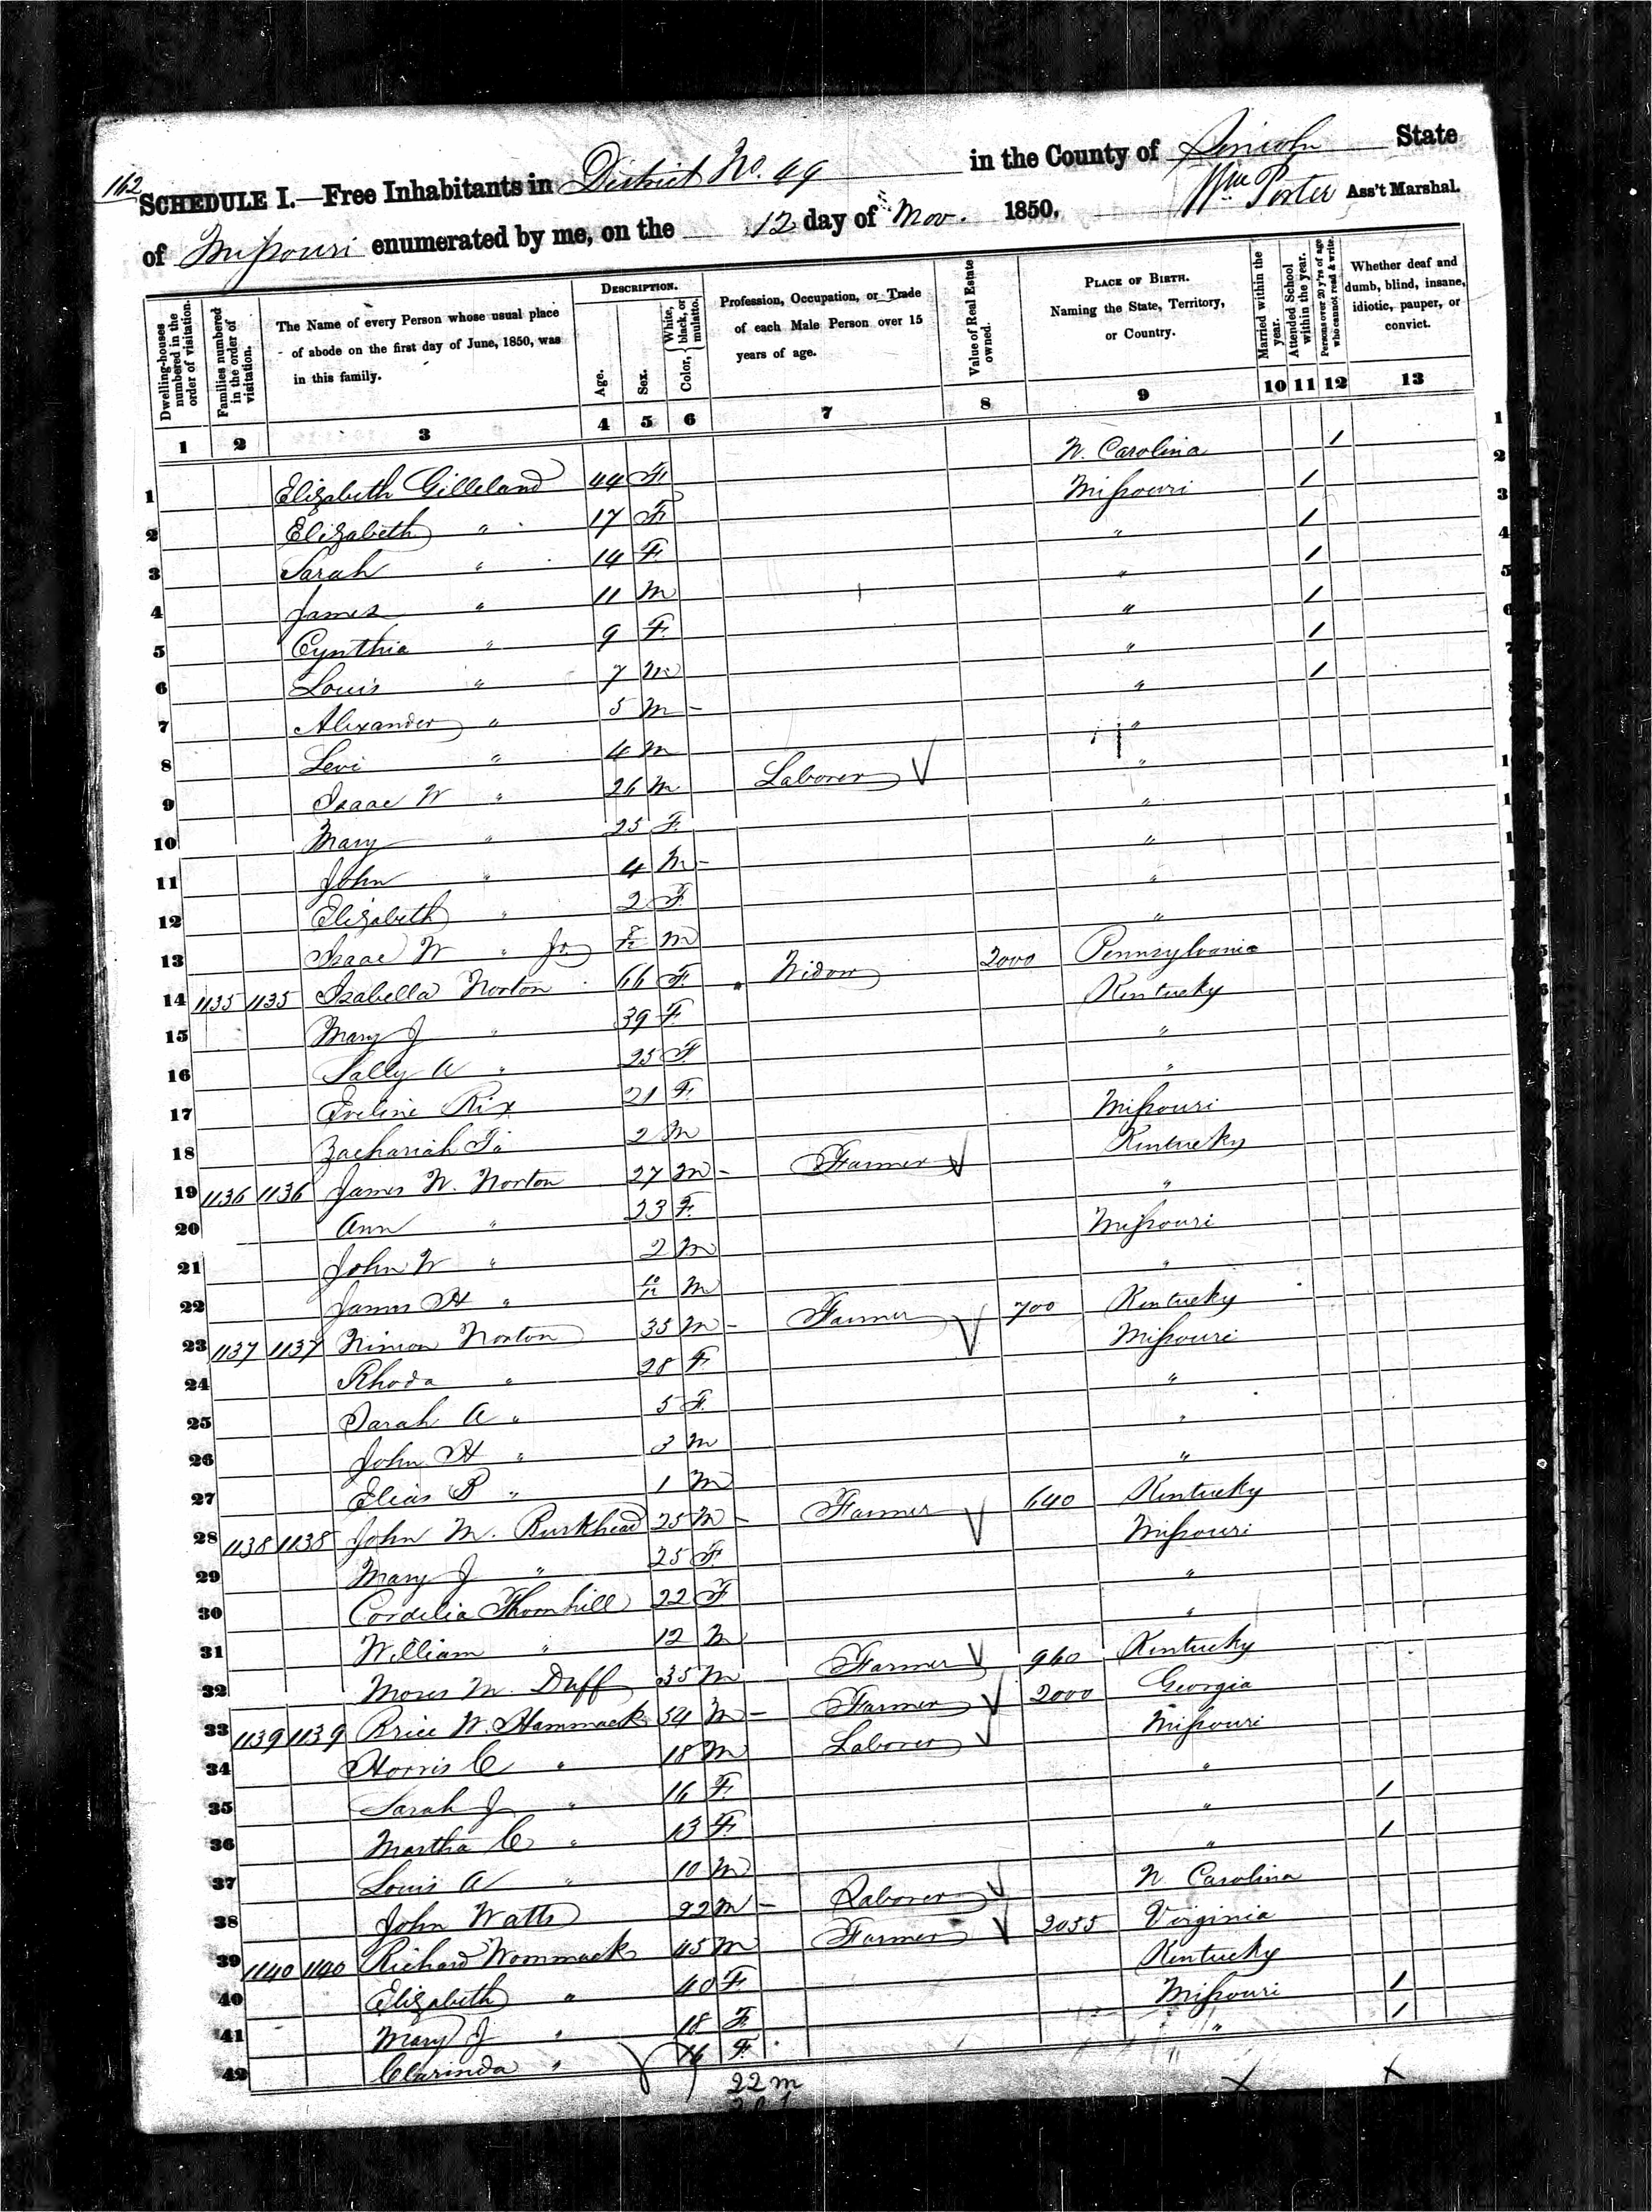 162
SCHEDULE I.—Free Inhabitants in District No. 49 in the County of Lincoln State
of Missouri enumerated by me, on the 12 day of Nov. 1850. Wm Porter Ass't Marshal.
Dwelling-houses numbered in the order of visitation. Families numbered in the order of visitation. The Name of every Person whose usual place of abode on the first day of June, 1850, was in this family. DESCRIPTION. Age. Sex. Color, { White, black, or mulatto. Profession, Occupation, or Trade of each Male Person over 15 years of age. Value of Real Estate owned. PLACE OF BIRTH. Naming the State, Territory, or Country. Married within the year. Attended School within the year. Persons over 20 y'rs of age who cannot read & write. Whether deaf and dumb, blind, insane, idiotic, pauper, or convict.
1 2 3 4 5 6 7 8 9 10 11 12 13
1 Elizabeth Gilleland 44 F N. Carolina / 1
2 Elizabeth " 17 F Missouri / 2
3 Sarah " 14 F " / 3
4 James " 11 M " / 4
5 Cynthia " 9 F " / 5
6 Louis " 7 M " / 6
7 Alexander " 5 M " /
8 Levi " 4 M "
9 Isaac W " 26 M Laborer "
10 Mary " 25 F "
11 John " 4 M "
12 Elizabeth " 2 F "
13 Isaac W " Jr M "
14 1135 1135 Isabella Norton 66 F Widow 2000 Pennsylvania
15 Mary J " 39 F Kentucky
16 Sally A " 25 F "
17 Eveline Rix 21 F "
18 Zachariah T. 2 M Missouri
19 1136 1136 James W. Norton 27 M Farmer Kentucky
20 Ann " 23 F "
21 John W " 2 M Missouri
22 James H " 10/12 M "
23 1137 1137 Norton 35 M Farmer 700 Kentucky
24 Rhoda " 28 F Missouri
25 Sarah A " 5 F "
26 John H " 3 M "
27 Elias B " 1 M "
28 1138 1138 John M. Burkhead 25 M Farmer 640 Kentucky
29 Mary J " 25 F Missouri
30 Cordelia Thornhill 22 F "
31 William " 12 M "
32 Moses M. Duff 35 M Farmer 960 Kentucky
33 1139 1139 Brice W. Hammack 54 M Farmer 2000 Georgia
34 Horris C " 18 M Laborer Missouri
35 Sarah J " 16 F "
36 Martha C " 13 F " /
37 Louis A " 10 M " /
38 John Watts 22 M Laborer N Carolina
39 1140 1140 Richard Wommack 45 M Farmer 2055 Virginia
40 Elizabeth " 40 F Kentucky
41 Mary J " 18 F Missouri /
42 Clarinda " 16 F " /
22 m